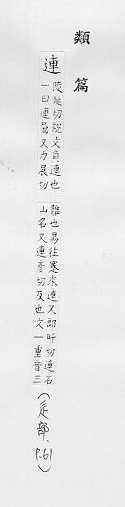 類篇
連
陵延切說文負連也
一曰連屬又力展切
難也易往蹇來連又郎旰切連石
山名又連彥切及也文一重音三
(辵部、P.61)